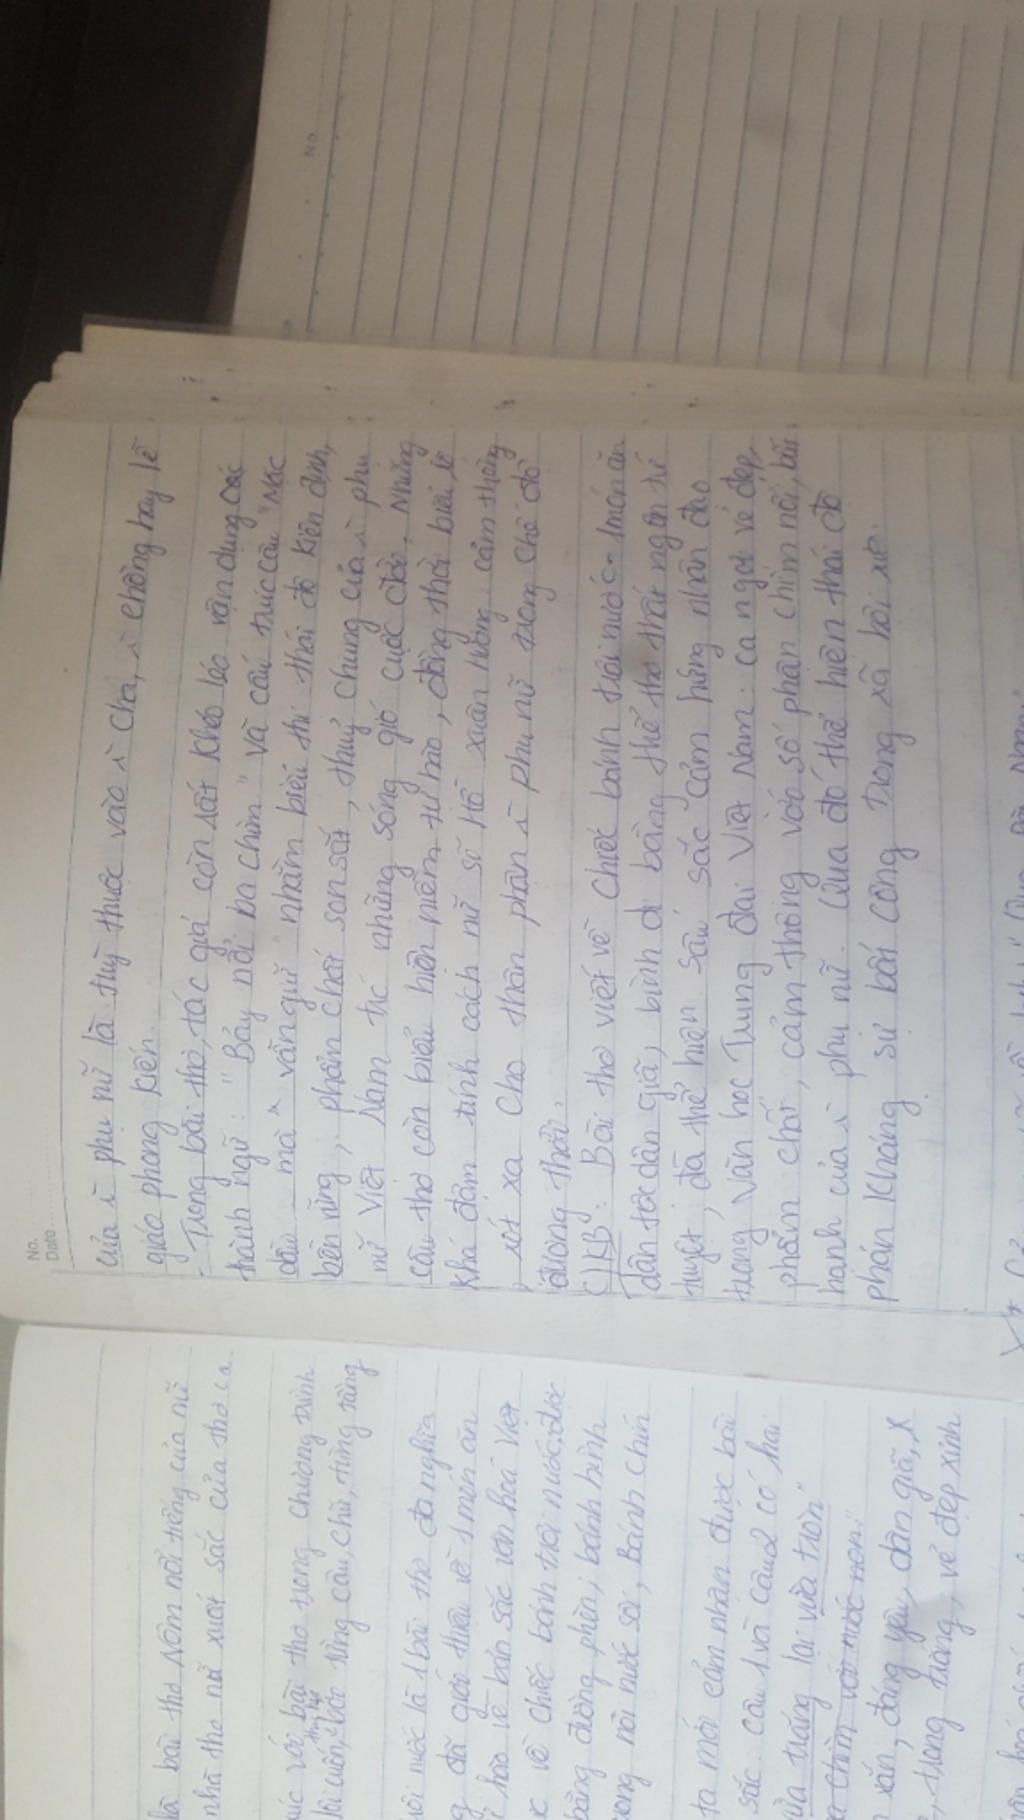 là bài thơ Nôm nổi tiếng của nữ
nhà thơ nữ xuất sắc của thơ ca
với bài thơ trong chương trình
lôi cuốn, bởi từng câu, chữ, từng
nước là 1 bài thơ đa nghĩa
đã giới thiệu về 1 món ăn
hào về bản sắc văn hoá Việt
về chiếc bánh trôi nước, được
bằng đường phên, bánh hình
trong nồi nước sôi, Bánh chín
ta mới cảm nhận được bài
sắc. Câu 1 và câu 2 có hai
trắng lại vừa tròn"
chìm với nước non."
xắn, đáng yêu, dân giã, x
trong trắng, vẻ đẹp xinh
No.
Date
của ㄔ phụ nữ là tuỳ thuộc vào ㄔ cha, ㄔ chồng hay lễ
giáo phong kiến.
- Trong bài thơ, tác giả còn rất khéo léo vận dụng các
thành ngữ: "Bảy nổi ba chìm" và cấu trúc câu "Mặc
dầu... mà vẫn giữ" nhằm biểu thị thái độ kiên định,
bền vững, phẩm chất son sắt, thuỷ chung của ㄔ phụ
nữ Việt Nam trc những sóng gió cuộc đời. Những
câu thơ còn biểu hiện niềm tự hào, đồng thời biểu lộ
khá đậm tính cách nữ sĩ Hồ Xuân Hương: cảm thông
, xót xa cho thân phận ㄔ phụ nữ trong chế độ
đương thời.
C) KB: Bài thơ viết về chiếc bánh trôi nước - 1 món ăn
dân tộc dân giã, bình dị bằng thể thơ thất ngôn tứ
tuyệt, đã thể hiện sâu sắc cảm hứng nhân đạo
trong văn học Trung đại Việt Nam: ca ngợi vẻ đẹp,
phẩm chất, cảm thông với số phận chìm nổi, bất
hạnh của ㄔ phụ nữ. Qua đó thể hiện thái độ
phản kháng sự bất công trong xã hội xưa.
No